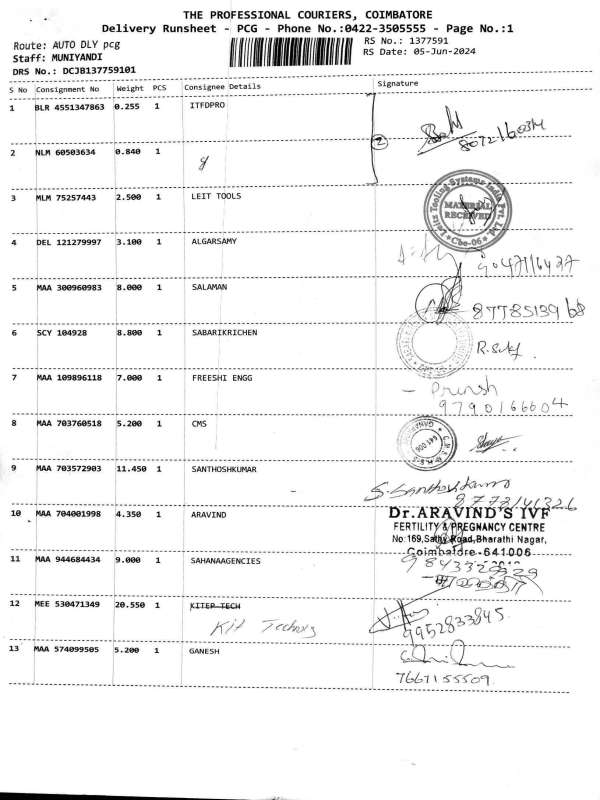 THE PROFESSIONAL COURIERS, COIMBATORE
Delivery Runsheet - PCG - Phone No.:0422-3505555 - Page No.:1
Route: AUTO DLY pcg
RS No.: 1377591
Staff: MUNIYANDI
RS Date: 05-Jun-2024
DRS No.: DCJB137759101
S No Consignment No Weight PCS Consignee Details Signature
1 BLR 4551347863 0.255 1 ITFDPRO
2
2 NLM 60503634 0.840 1
3 MLM 75257443 2.500 1 LEIT TOOLS
MATERIAL RECEIVED
Cbe-06
4 DEL 121279997 3.100 1 ALGARSAMY
5 MAA 300960983 8.000 1 SALAMAN
8778513968
6 SCY 104928 8.800 1 SABARIKRICHEN
7 MAA 109896118 7.000 1 FREESHI ENGG
9790166604
8 MAA 703760518 5.200 1 CMS
9 MAA 703572903 11.450 1 SANTHOSHKUMAR
S. Santhoshkumar
10 MAA 704001998 4.350 1 ARAVIND
Dr.ARAVIND'S IVF
FERTILITY & PREGNANCY CENTRE
No:169,Sathy Road,Bharathi Nagar,
Coimbatore-641006
11 MAA 944684434 9.000 1 SAHANAAGENCIES
12 MEE 530471349 20.550 1 KITEP TECH
Kit
9952833845
13 MAA 574099505 5.200 1 GANESH
7667155509